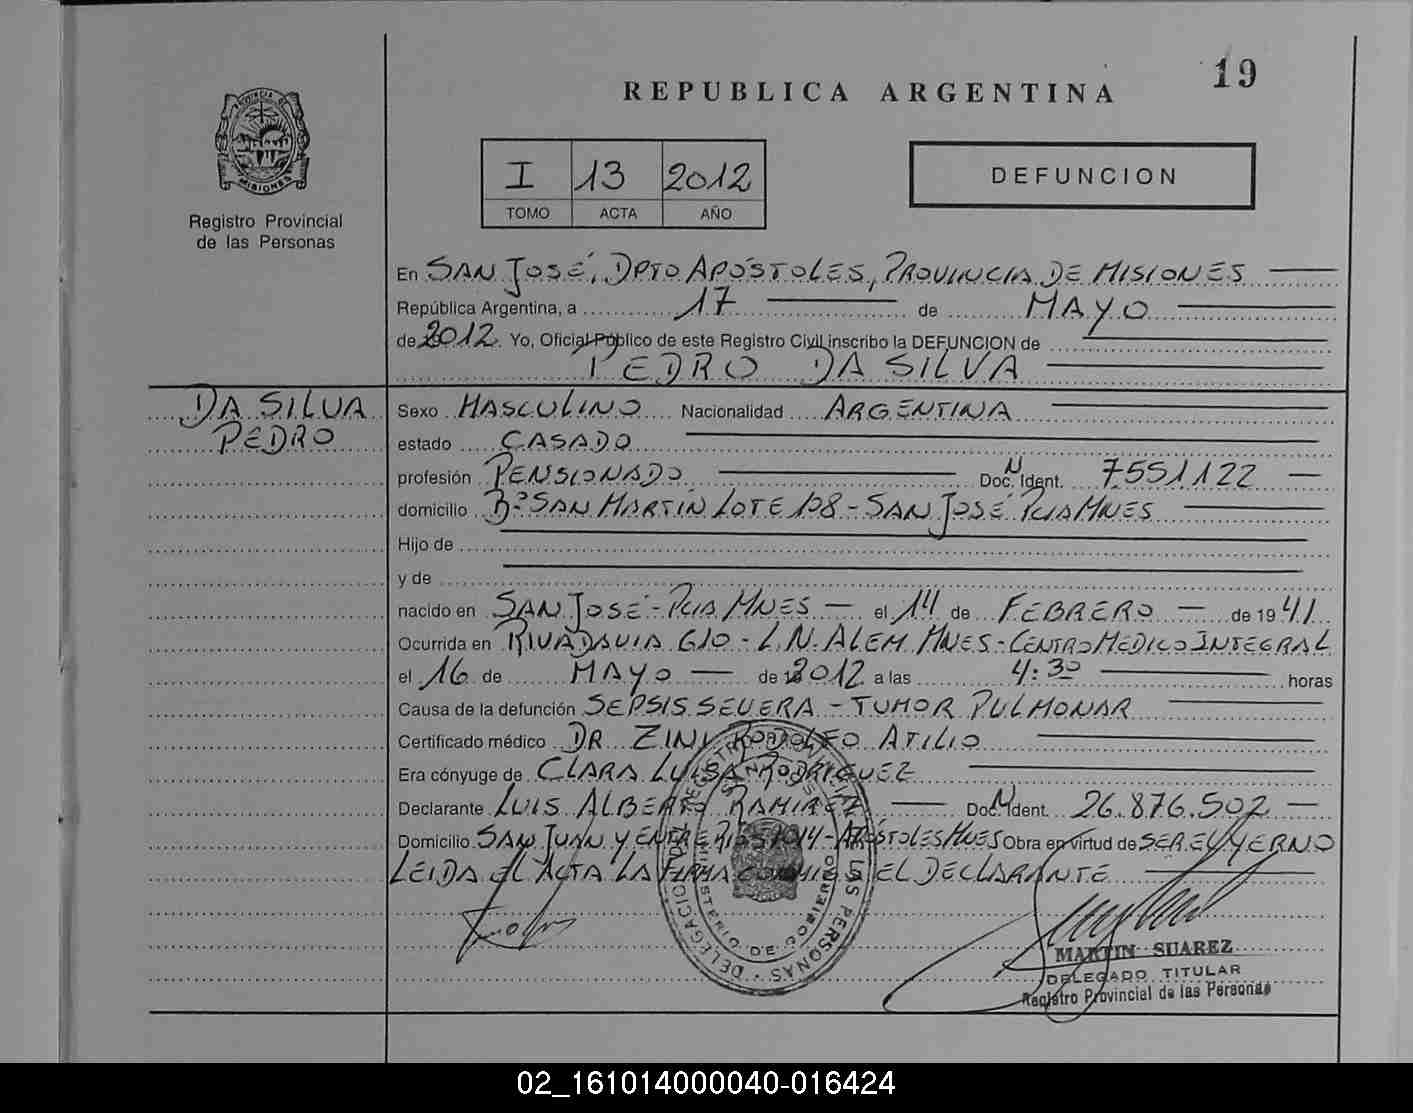 19
REPUBLICA ARGENTINA
PROVINCIA DE
MISIONES
Registro Provincial
de las Personas
I 13 2012
TOMO ACTA AÑO
DEFUNCION
En SAN JOSÉ, DPTO APÓSTOLES, PROVINCIA DE MISIONES
República Argentina, a 17 de MAYO
de 2012. Yo, Oficial Público de este Registro Civil inscribo la DEFUNCION de
PEDRO DA SILVA
DA SILVA
PEDRO
Sexo MASCULINO Nacionalidad ARGENTINA
estado CASADO
profesión PENSIONADO Doc. N Ident. 7551122
domicilio Bº SAN MARTIN LOTE 108 - SAN JOSÉ PCIA MNES
Hijo de
y de
nacido en SAN JOSÉ - PCIA MNES el 14 de FEBRERO de 1941
Ocurrida en RIVADAVIA 610 - L.N. ALEM MNES - CENTRO MEDICO INTEGRAL
el 16 de MAYO de 2012 a las 4:30 horas
Causa de la defunción SEPSIS SEVERA - TUMOR PULMONAR
Certificado médico DR ZINI RODOLFO ATILIO
Era cónyuge de CLARA LUISA RODRIGUEZ
Declarante LUIS ALBERTO RAMIREZ Doc. N Ident. 26.876.502
Domicilio SAN JUAN Y ENTRE RIOS 1014 - APÓSTOLES MNES Obra en virtud de SER EL YERNO
LEIDA EL ACTA LA FIRMA CONMIGO EL DECLARANTE
MARTIN SUAREZ
DELEGADO TITULAR
Registro Provincial de las Personas
02_161014000040-016424